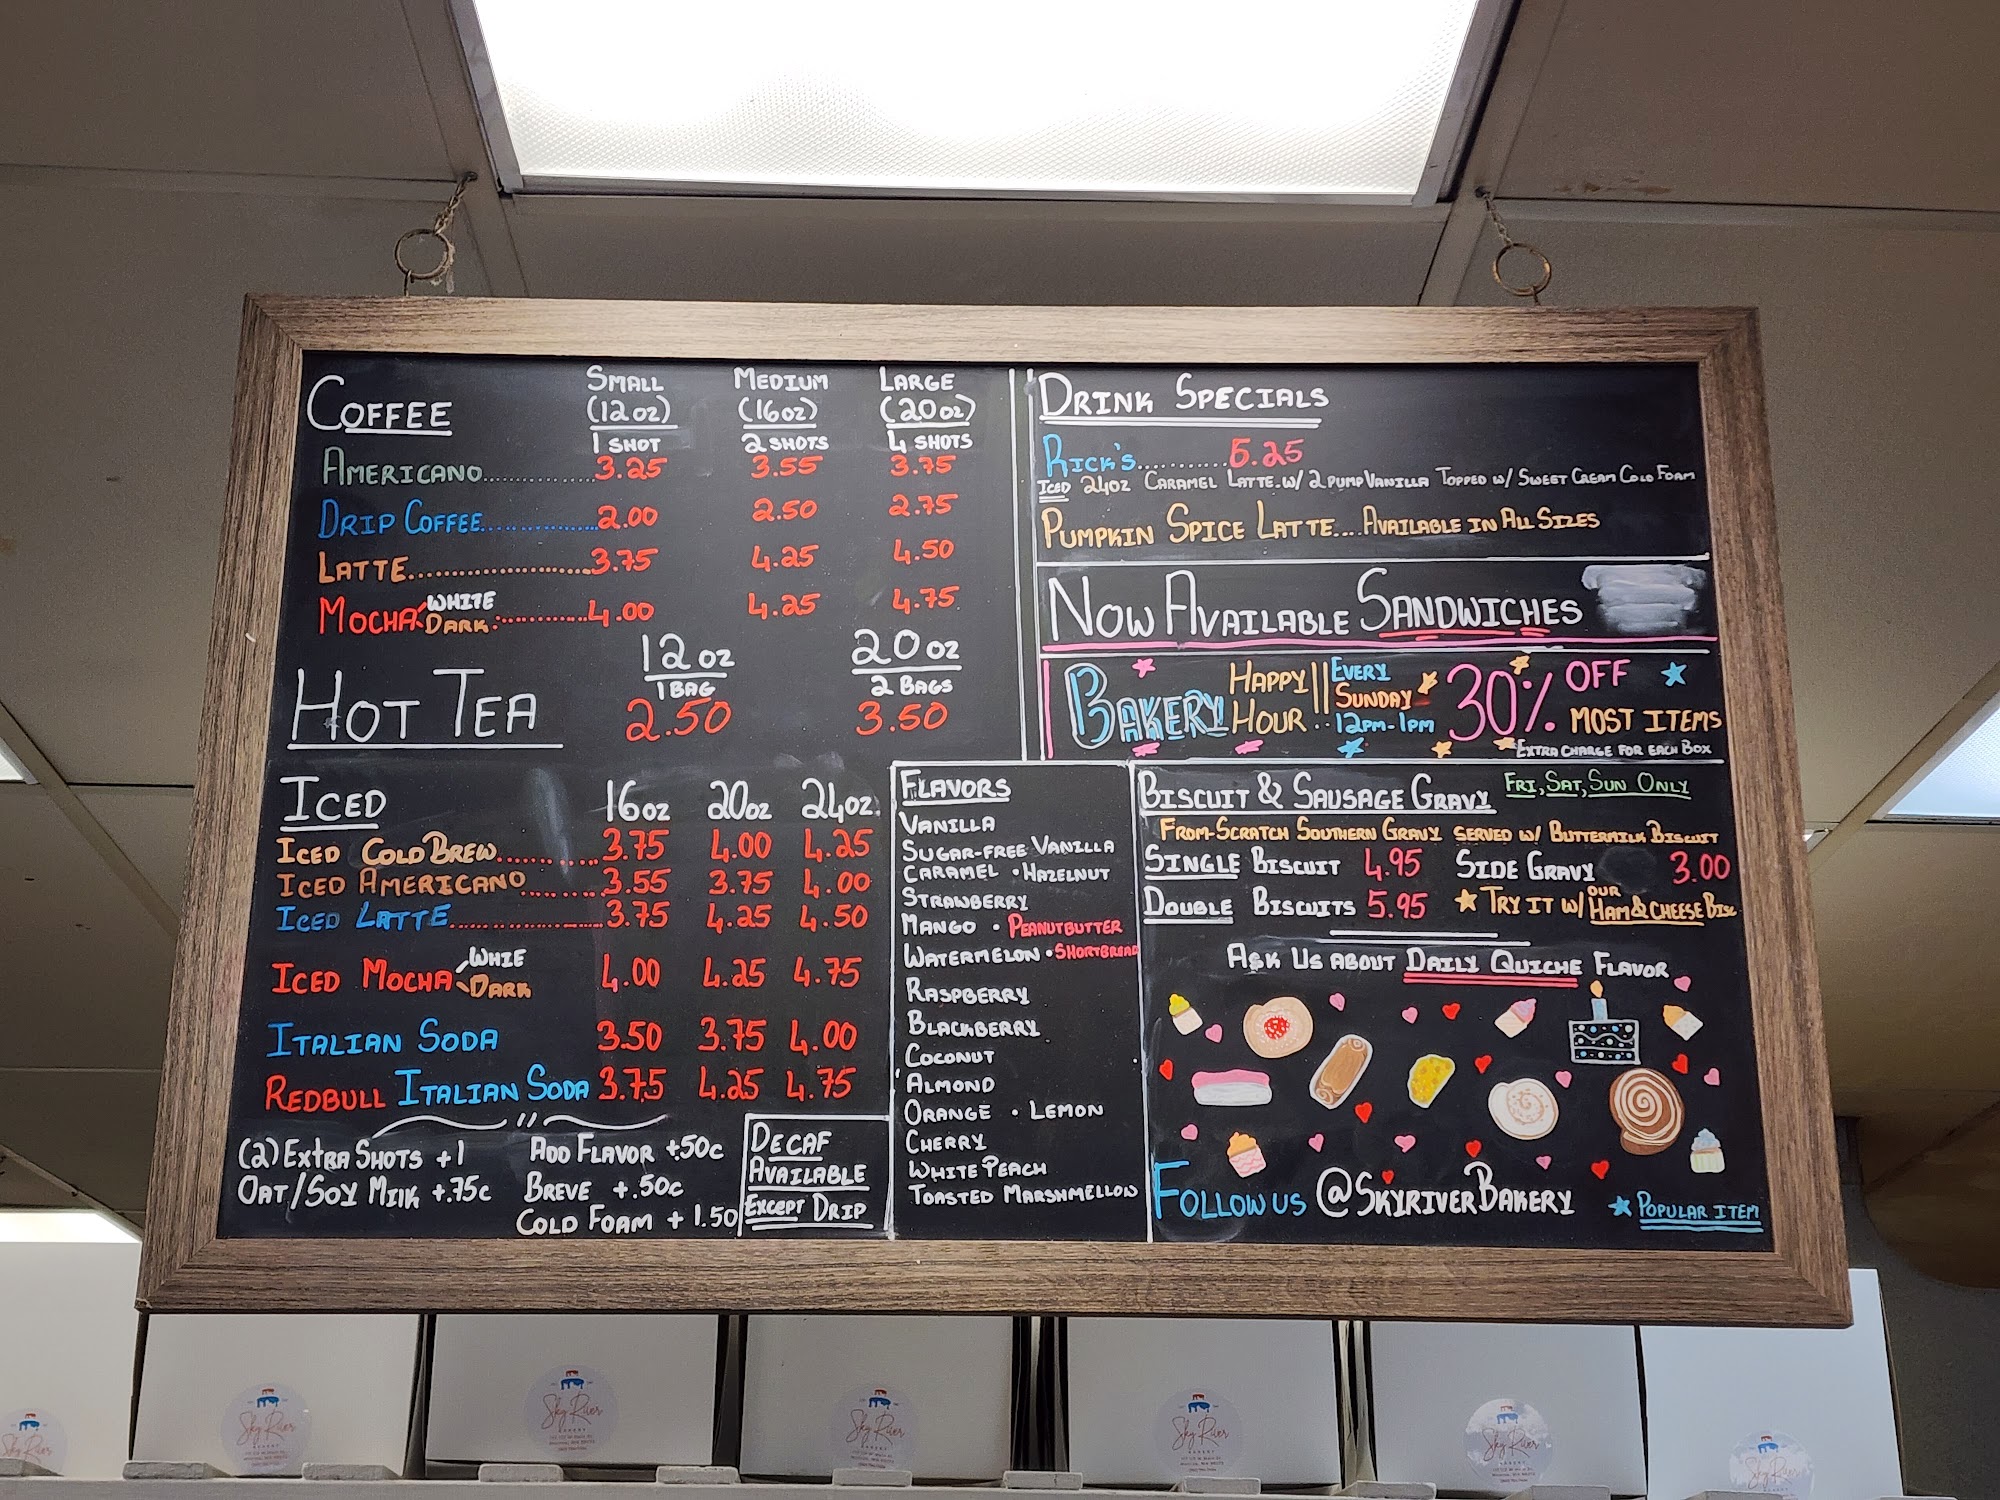 COFFEE
SMALL MEDIUM LARGE
(12oz) (16oz) (20oz)
1 SHOT 2 SHOTS 4 SHOTS
AMERICANO.............. 3.25 3.55 3.75
DRIP COFFEE.............. 2.00 2.50 2.75
LATTE...................... 3.75 4.25 4.50
MOCHA WHITE
DARK............ 4.00 4.25 4.75
HOT TEA
12oz 20oz
1 BAG 2 BAGS
2.50 3.50
ICED 16oz 20oz 24oz.
ICED COLD BREW............ 3.75 4.00 4.25
ICED AMERICANO.......... 3.55 3.75 4.00
ICED LATTE.................. 3.75 4.25 4.50
ICED MOCHA WHIE
DARK 4.00 4.25 4.75
ITALIAN SODA 3.50 3.75 4.00
REDBULL ITALIAN SODA 3.75 4.25 4.75
(2) EXTRA SHOTS +1
OAT/SOY MILK +.75c
ADD FLAVOR +.50c
BREVE +.50c
COLD FOAM + 1.50
DECAF
AVAILABLE
EXCEPT DRIP
FLAVORS
VANILLA
SUGAR-FREE VANILLA
CARAMEL • HAZELNUT
STRAWBERRY
MANGO • PEANUTBUTTER
WATERMELON • SHORTBREAD
RASPBERRY
BLACKBERRY
COCONUT
ALMOND
ORANGE • LEMON
CHERRY
WHITE PEACH
TOASTED MARSHMELLOW
DRINK SPECIALS
RICK'S............ 5.25
ICED 24oz CARAMEL LATTE W/ 2 PUMP VANILLA TOPPED W/ SWEET CREAM COLD FOAM
PUMPKIN SPICE LATTE....AVAILABLE IN ALL SIZES
NOW AVAILABLE SANDWICHES
BAKERY HAPPY HOUR
EVERY
SUNDAY
12PM-1PM
30% OFF
MOST ITEMS
EXTRA CHARGE FOR EACH BOX
BISCUIT & SAUSAGE GRAVY FRI, SAT, SUN ONLY
FROM-SCRATCH SOUTHERN GRAVY SERVED W/ BUTTERMILK BISCUIT
SINGLE BISCUIT 4.95 SIDE GRAVY 3.00
DOUBLE BISCUITS 5.95 ★ TRY IT W/ OUR HAM & CHEESE BISC
ASK US ABOUT DAILY QUICHE FLAVOR
FOLLOW US @SKYRIVERBAKERY
★ POPULAR ITEM
Sky River
BAKERY
Sky River
BAKERY
Sky River
BAKERY
Sky River
BAKERY
Sky River
BAKERY
Sky River
Sky River